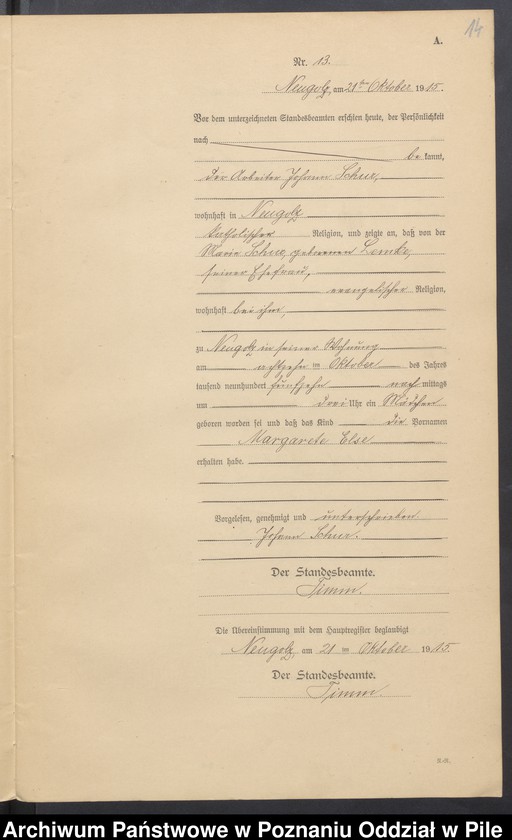 14
A.
Nr. 13.
Neugolz, am 21ten Oktober 1915.
Vor dem unterzeichneten Standesbeamten erschien heute, der Persönlichkeit
nach
be kannt,
der Arbeiter Johann Schur,
wohnhaft in Neugolz
katholischer Religion, und zeigte an, daß von der
Marie Schur, geborenen Lemke,
seiner Ehefrau,
evangelischer Religion,
wohnhaft bei ihm,
zu Neugolz in seiner Wohnung
am achtzehn im Oktober des Jahres
tausend neunhundert fünfzehn nach mittags
um drei Uhr ein Mädchen
geboren worden sei und daß das Kind die Vornamen
Margarete Else
erhalten habe.
Vorgelesen, genehmigt und unterschrieben
Johann Schur.
Der Standesbeamte.
Timm.
Die Übereinstimmung mit dem Hauptregister beglaubigt
Neugolz, am 21 im Oktober 1915.
Der Standesbeamte.
Timm.
Archiwum Państwowe w Poznaniu Oddział w Pile